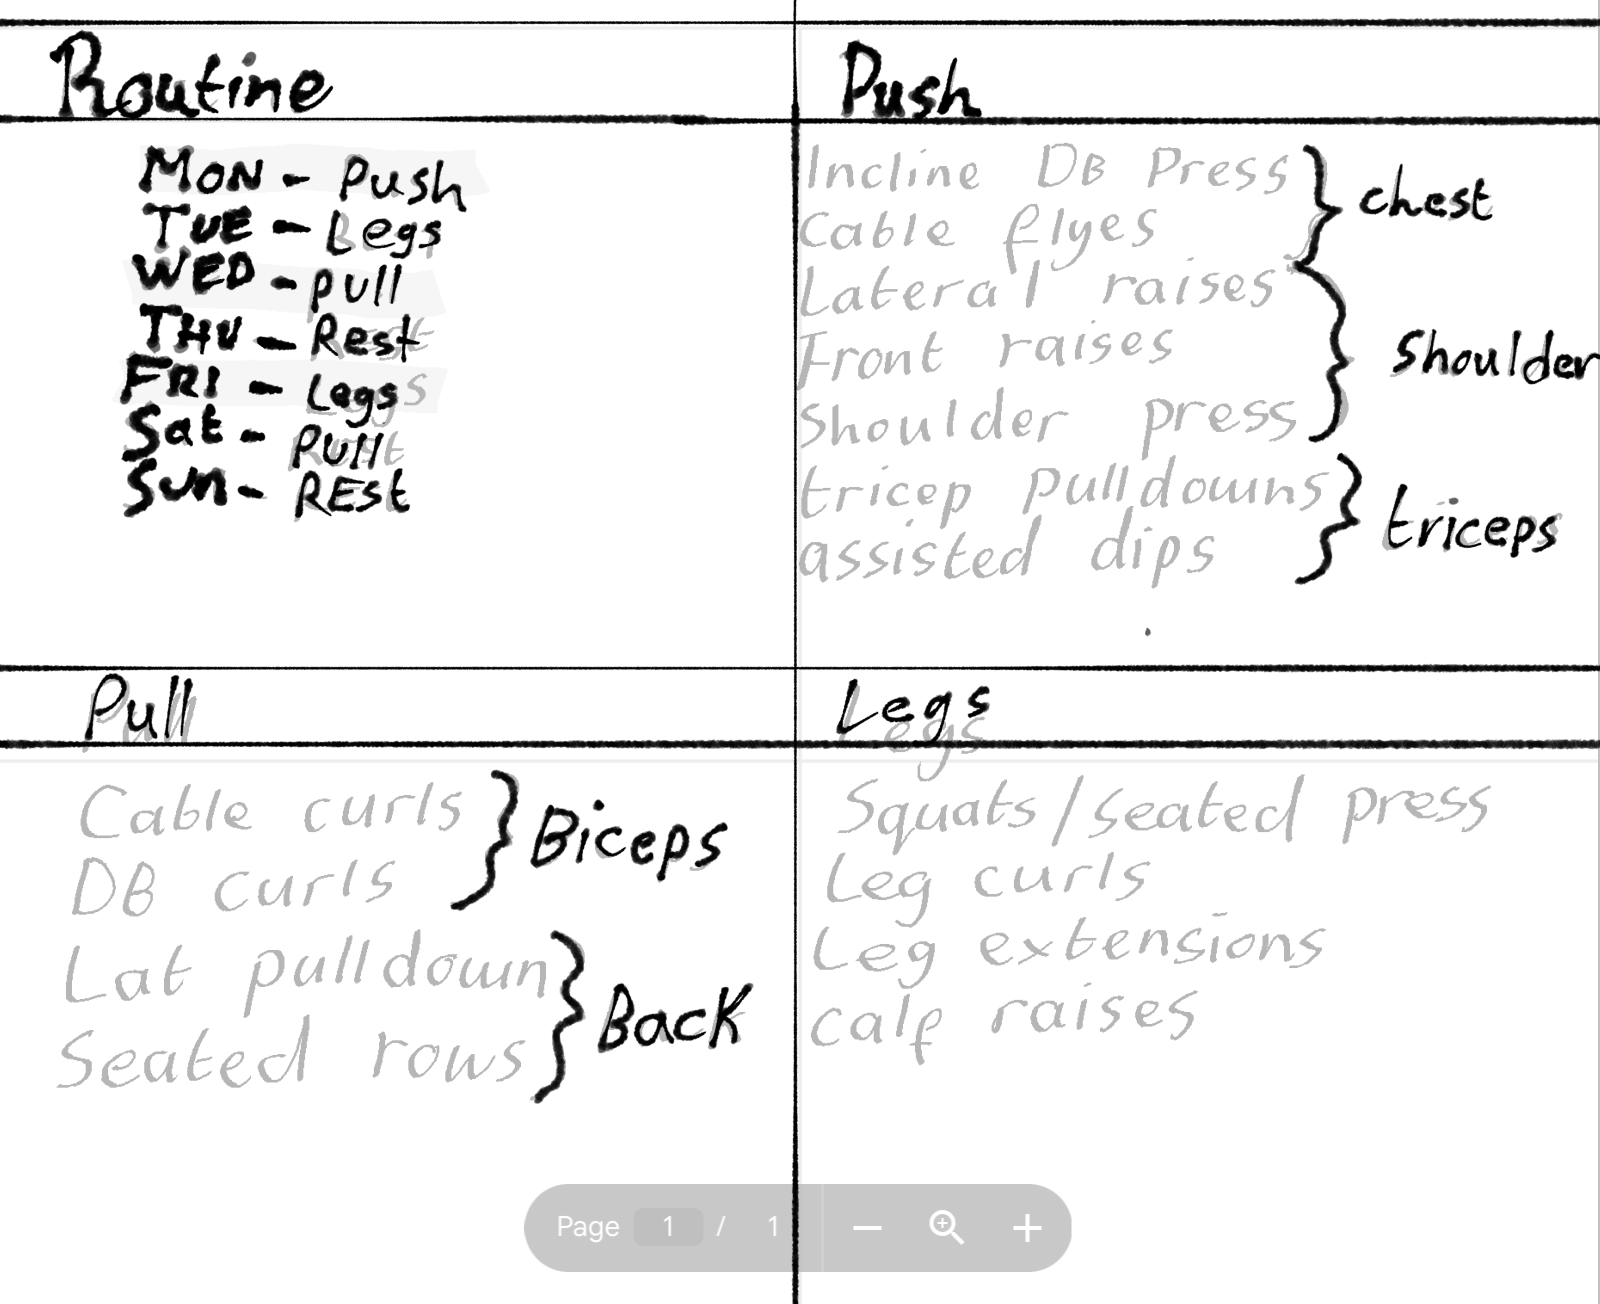 Routine
MON - Push
TUE - Legs
WED - pull
THU - Rest
FRI - Legs
Sat - Pull
Sun - REst
Push
Incline DB Press
Cable flyes
chest
Lateral raises
Front raises
Shoulder press
Shoulder
tricep pulldowns
assisted dips
triceps
Pull
Cable curls
DB curls
Biceps
Lat pulldown
Seated rows
Back
Legs
Squats/seated press
Leg curls
Leg extensions
calf raises
Page 1 / 1